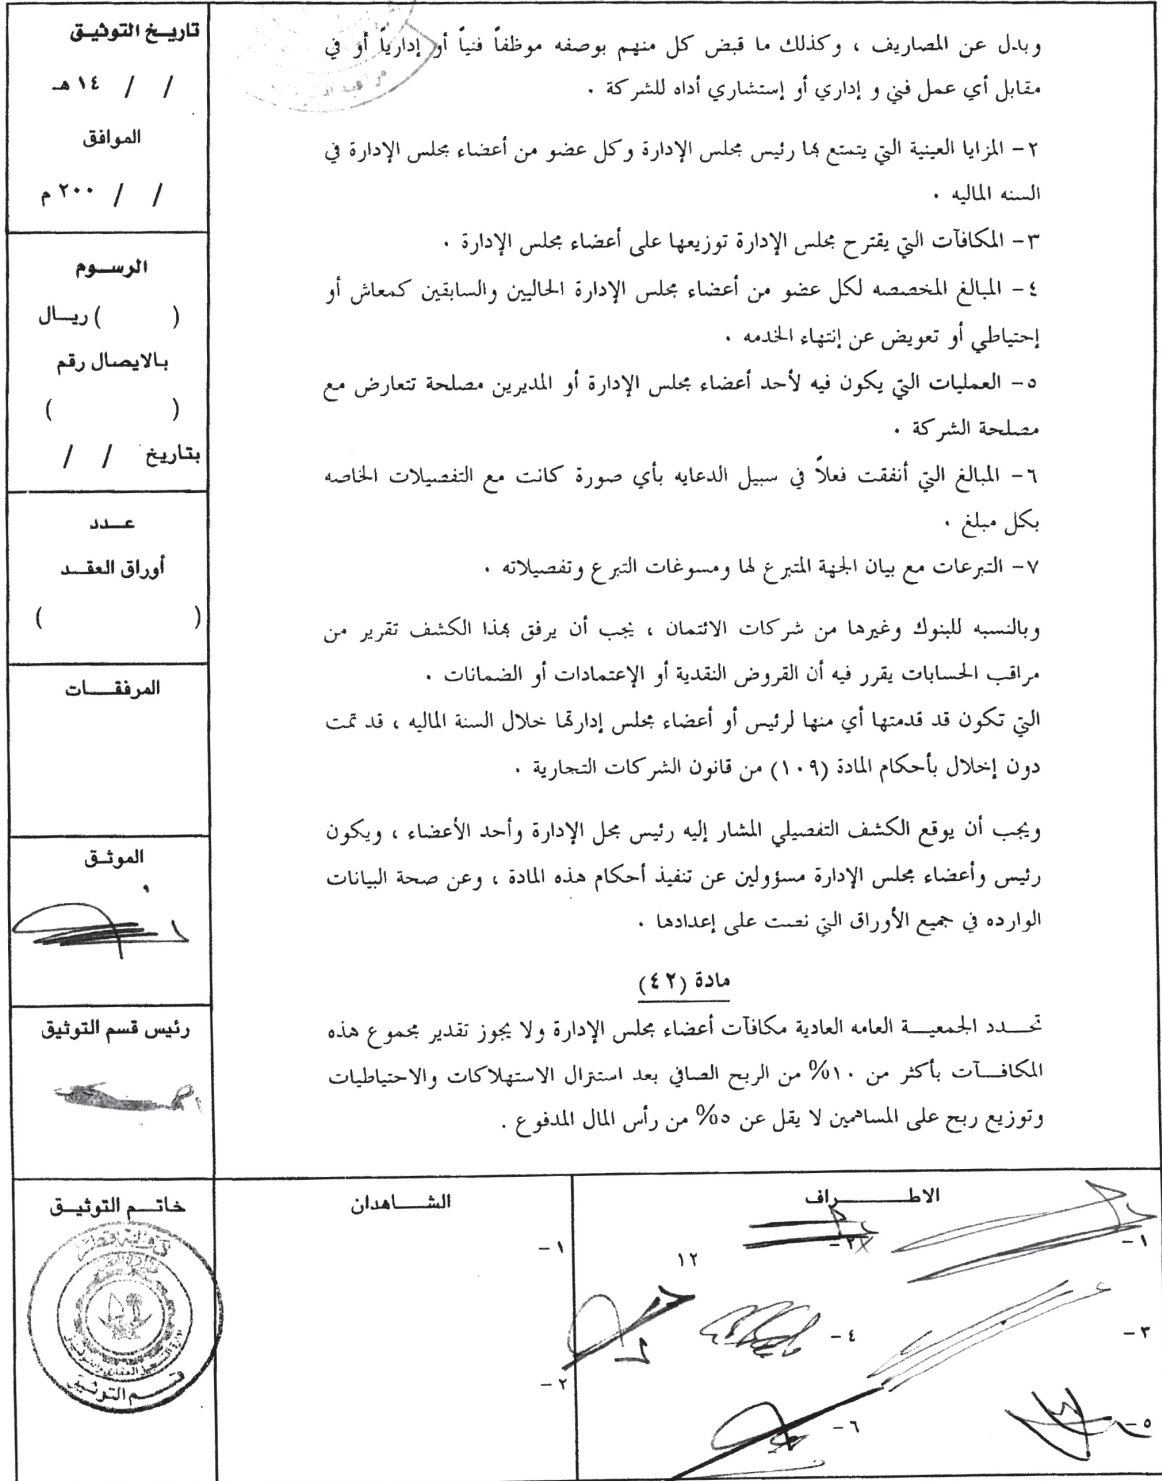 وبدل عن المصاريف ، وكذلك ما قبض كل منهم بوصفه موظفاً فنياً أو إدارياً أو في
مقابل أي عمل فني و إداري أو إستشاري أداه للشركة .
٢- المزايا العينية التي يتمتع بها رئيس مجلس الإدارة وكل عضو من أعضاء مجلس الإدارة في
السنه الماليه .
٣- المكافآت التي يقترح مجلس الإدارة توزيعها على أعضاء مجلس الإدارة .
٤- المبالغ المخصصه لكل عضو من أعضاء مجلس الإدارة الحاليين والسابقين كمعاش أو
إحتياطي أو تعويض عن إنتهاء الخدمه .
٥- العمليات التي يكون فيه لأحد أعضاء مجلس الإدارة أو المديرين مصلحة تتعارض مع
مصلحة الشركة .
٦- المبالغ التي أنفقت فعلاً في سبيل الدعايه بأي صورة كانت مع التفصيلات الخاصه
بكل مبلغ .
٧- التبرعات مع بيان الجهة المتبرع لها ومسوغات التبرع وتفصيلاته .
وبالنسبه للبنوك وغيرها من شركات الائتمان ، يجب أن يرفق بهذا الكشف تقرير من
مراقب الحسابات يقرر فيه أن القروض النقدية أو الإعتمادات أو الضمانات .
التي تكون قد قدمتها أي منها لرئيس أو أعضاء مجلس إدارتها خلال السنة الماليه ، قد تمت
دون إخلال بأحكام المادة (١٠٩) من قانون الشركات التجارية .
ويجب أن يوقع الكشف التفصيلي المشار إليه رئيس مجل الإدارة وأحد الأعضاء ، ويكون
رئيس وأعضاء مجلس الإدارة مسؤولين عن تنفيذ أحكام هذه المادة ، وعن صحة البيانات
الوارده في جميع الأوراق التي نصت على إعدادها .
مادة (٤٢)
تحـــدد الجمعيـــة العامه العادية مكافآت أعضاء مجلس الإدارة ولا يجوز تقدير مجموع هذه
المكافـــآت بأكثر من ١٠% من الربح الصافي بعد استنزال الاستهلاكات والاحتياطيات
وتوزيع ربح على المساهمين لا يقل عن ٥% من رأس المال المدفوع .
تاريـخ التوثيـق
/ / ١٤ هـ
الموافق
/ / ٢٠٠ م
الرســوم
( ) ريــال
بـالايصال رقم
( )
بتاريخ / /
عـــدد
أوراق العقــد
( )
المرفقــــات
الموثـق
رئيس قسم التوثيق
خاتــم التوثيــق
دولة قطر
قسم التوثيق
الاطـــــــراف
١-
٢-
٣-
٤-
٥-
٦-
١٢
الشـــاهدان
١-
٢-